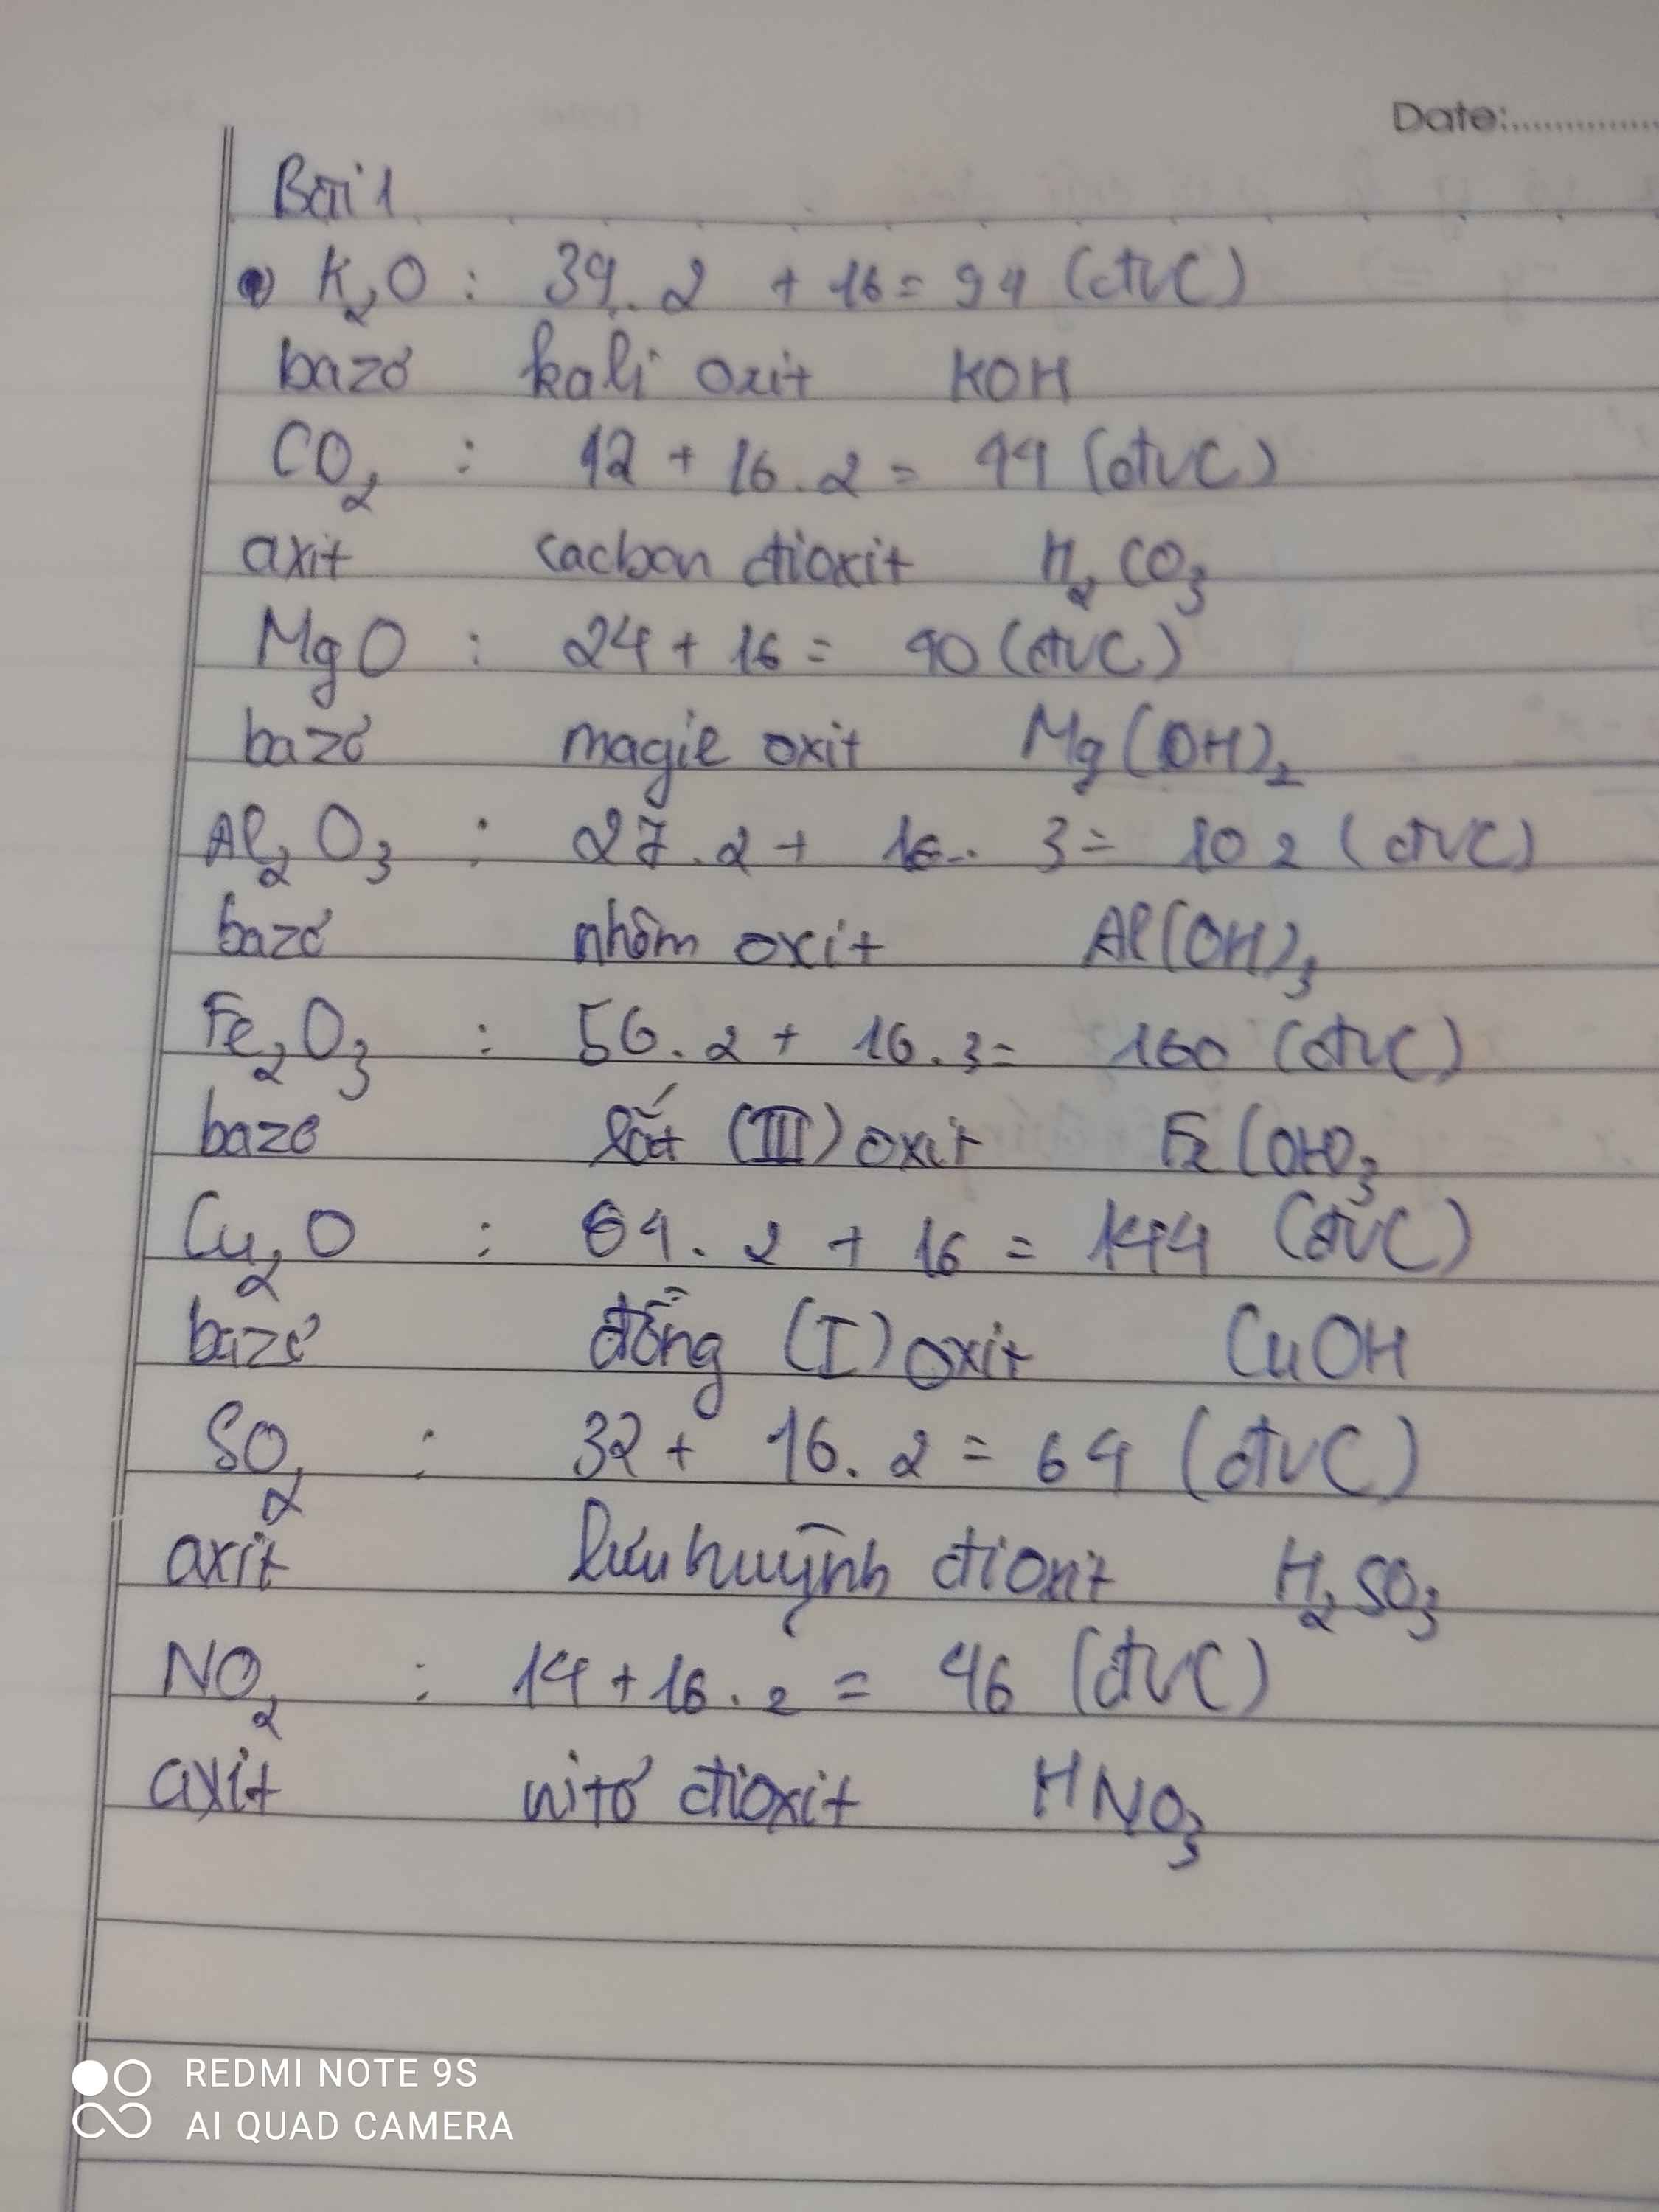 Date:
Bài 1
K₂O : 39.2 + 16 = 94 (đvC)
bazơ kali oxit KOH
CO₂ : 12 + 16.2 = 44 (đvC)
axit cacbon đioxit H₂CO₃
MgO : 24 + 16 = 40 (đvC)
bazơ magie oxit Mg(OH)₂
Al₂O₃ : 27.2 + 16.3 = 102 (đvC)
bazơ nhôm oxit Al(OH)₃
Fe₂O₃ : 56.2 + 16.3 = 160 (đvC)
bazo sắt (III) oxit Fe(OH)₃
Cu₂O : 64.2 + 16 = 144 (đvC)
bazơ đồng (I) oxit CuOH
SO₂ : 32 + 16.2 = 64 (đvC)
axit lưu huỳnh đioxit H₂SO₃
NO₂ : 14 + 16.2 = 46 (đvC)
axit nitơ đioxit HNO₃
REDMI NOTE 9S
AI QUAD CAMERA